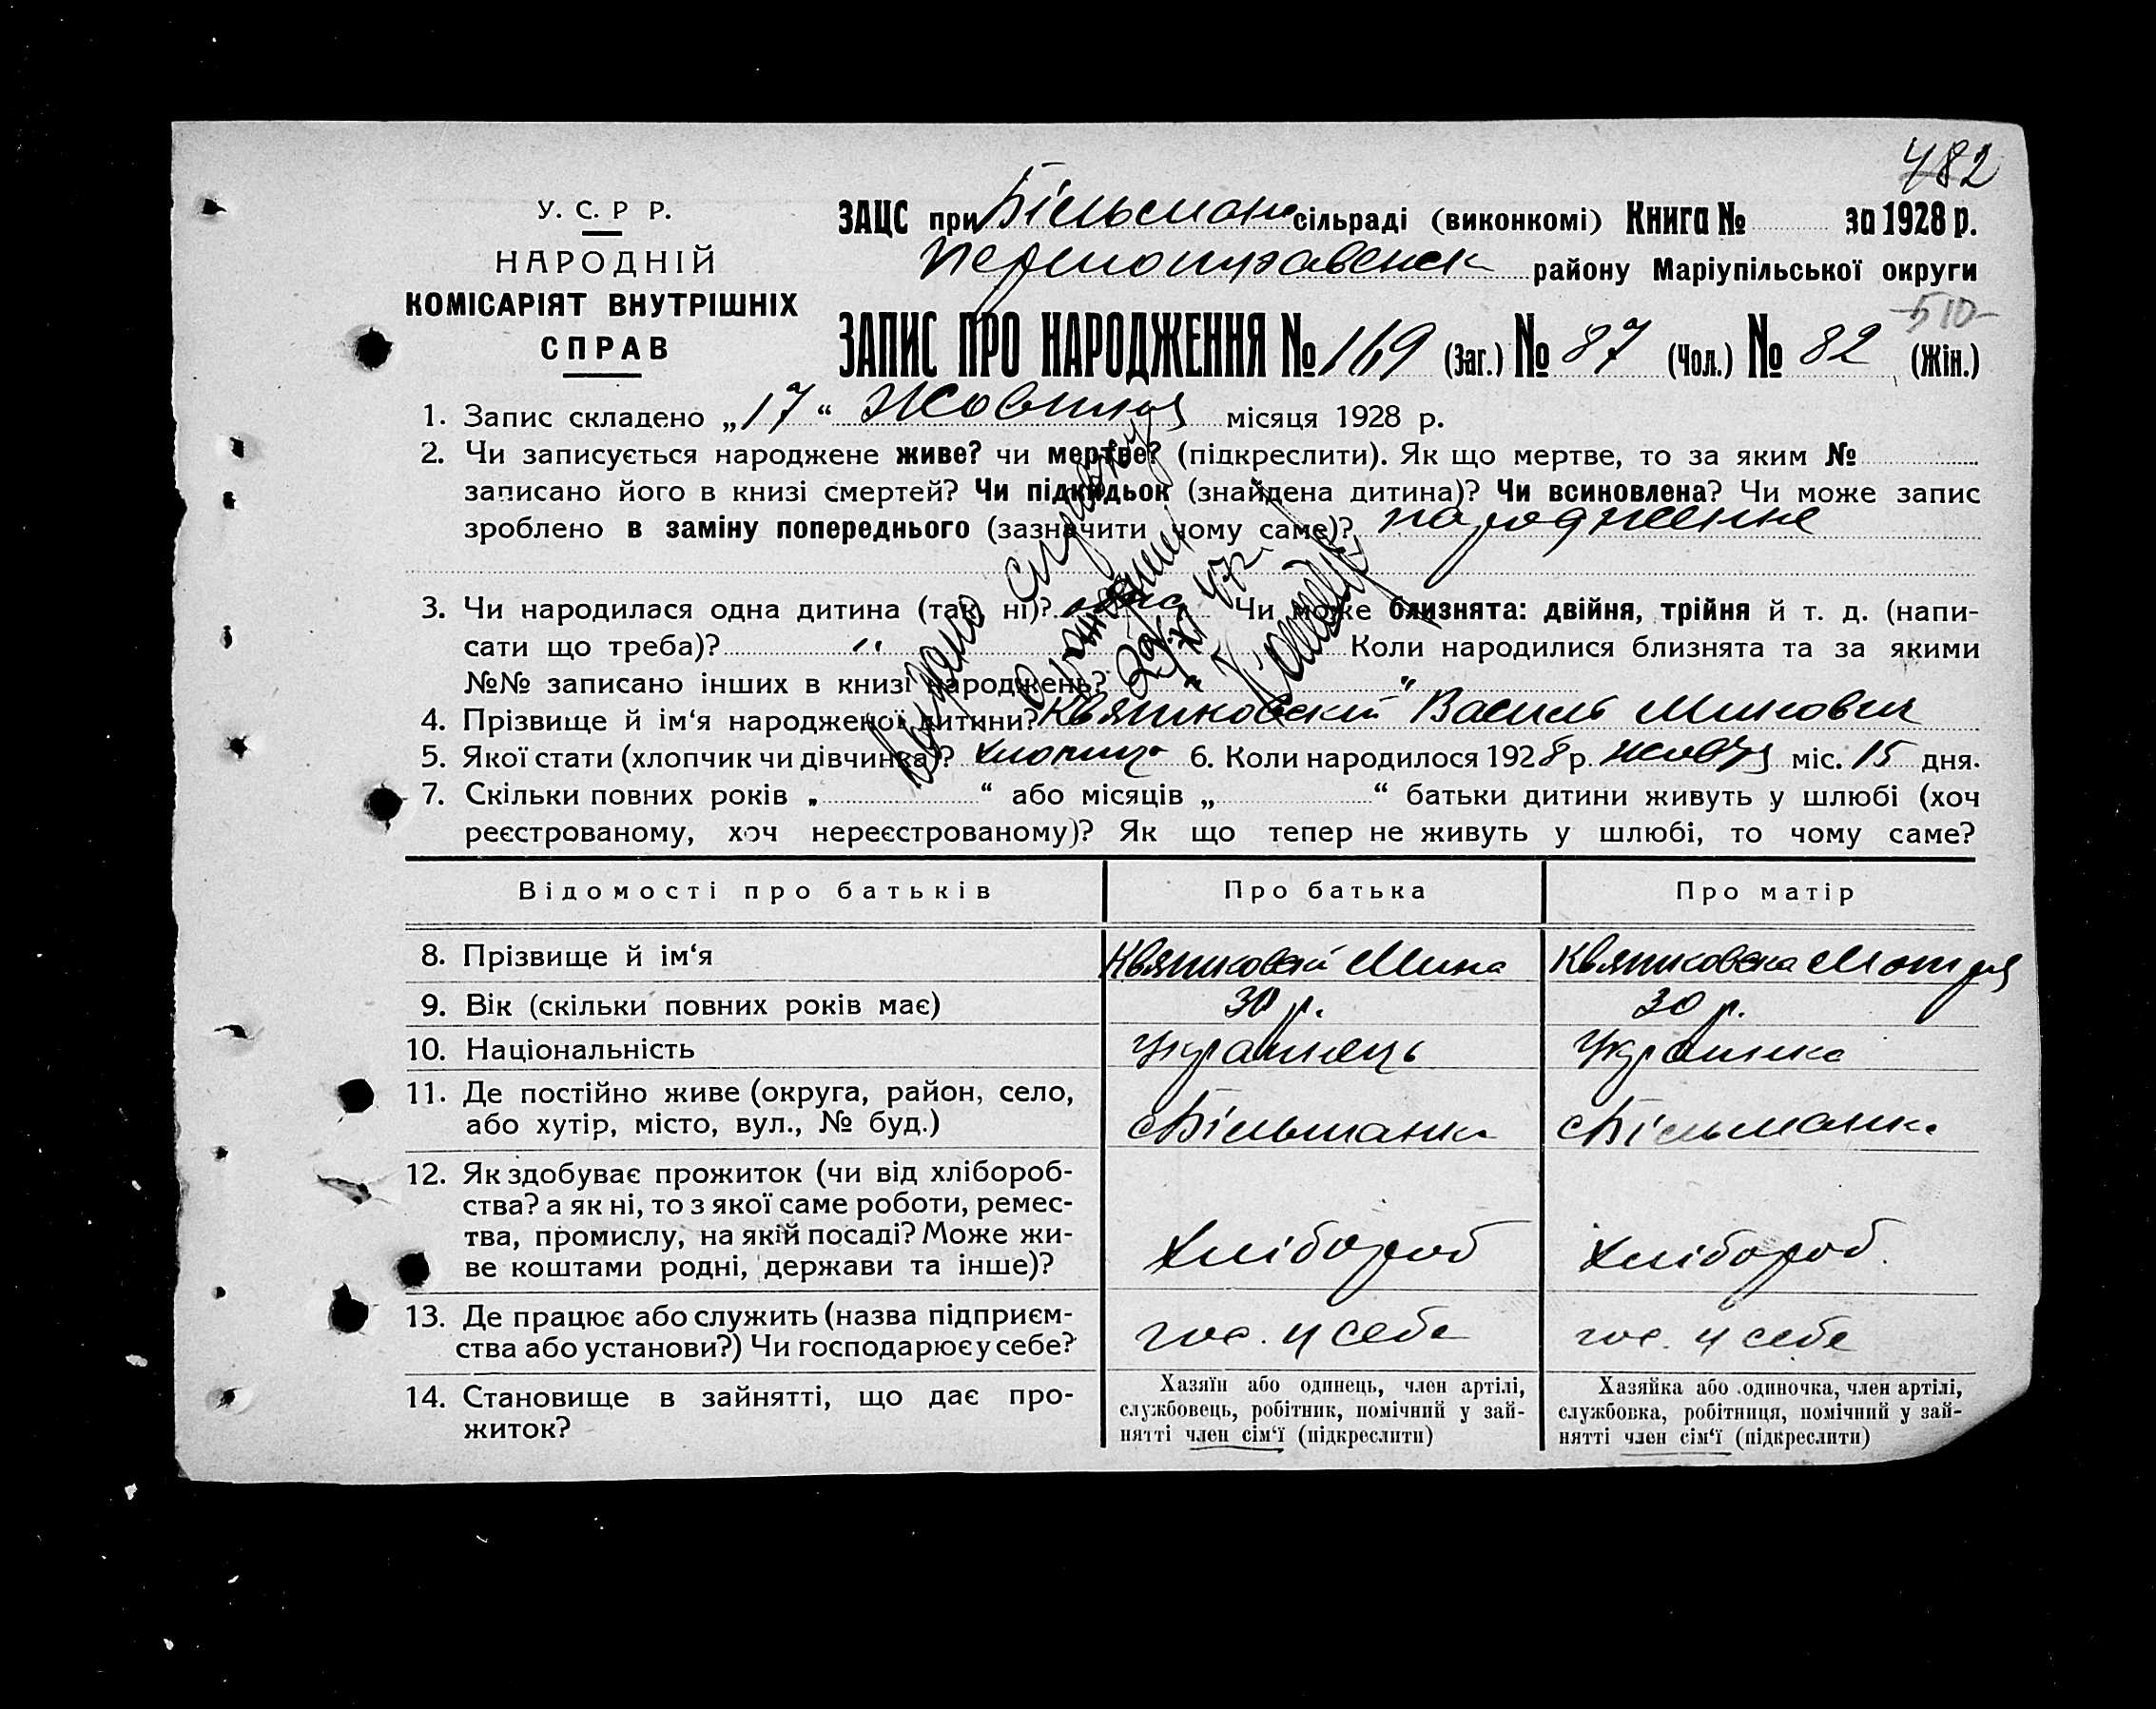 482
У. С. Р Р.
НАРОДНІЙ
КОМІСАРІЯТ ВНУТРІШНІХ
СПРАВ
ЗАЦС при Більманк сільраді (виконкомі) Книга № за 1928 р.
району Маріупільської округи
510
ЗАПИС ПРО НАРОДЖЕННЯ № 169 (Заг.) № 87 (Чол.) № 82 (Жін.)
1. Запис складено „17“ Жовтня місяця 1928 р.
2. Чи записується народжене живе? чи мертве? (підкреслити). Як що мертве, то за яким №
записано його в книзі смертей? Чи підкидьок (знайдена дитина)? Чи всиновлена? Чи може запис
зроблено в заміну попереднього (зазначити чому саме)? народження
3. Чи народилася одна дитина (так, ні)? одна Чи може близнята: двійня, трійня й т. д. (напи-
сати що треба)? " Коли народилися близнята та за якими
№№ записано інших в книзі народжень? " "
4. Прізвище й ім‘я народженої дитини? Квятковский Василь Минович
5. Якої стати (хлопчик чи дівчинка)? хлопець 6. Коли народилося 1928 р. жовтня міс. 15 дня.
7. Скільки повних років „ “ або місяців „ “ батьки дитини живуть у шлюбі (хоч
реєстрованому, хоч нереєстрованому)? Як що тепер не живуть у шлюбі, то чому саме?
Відомості про батьків Про батька Про матір
8. Прізвище й ім‘я Квятковский Мина Квятковска Мотря
9. Вік (скільки повних років має) 30 р. 30 р.
10. Національність Українець Українка
11. Де постійно живе (округа, район, село,
або хутір, місто, вул., № буд.) с Більманка с Більманка
12. Як здобуває прожиток (чи від хлібороб-
ства? а як ні, то з якої саме роботи, ремес-
тва, промислу, на якій посаді? Може жи-
ве коштами родні, держави та інше)? хлібороб хлібороб.
13. Де працює або служить (назва підприєм-
ства або установи?) Чи господарює у себе? гос. у себе гос. у себе
14. Становище в зайнятті, що дає про-
житок?
Хазяїн або одинець, член артілі,
службовець, робітник, помічний у зай-
нятті член сім‘ї (підкреслити)
Хазяйка або одиночка, член артілі,
службовка, робітниця, помічний у зай-
нятті член сім‘ї (підкреслити)